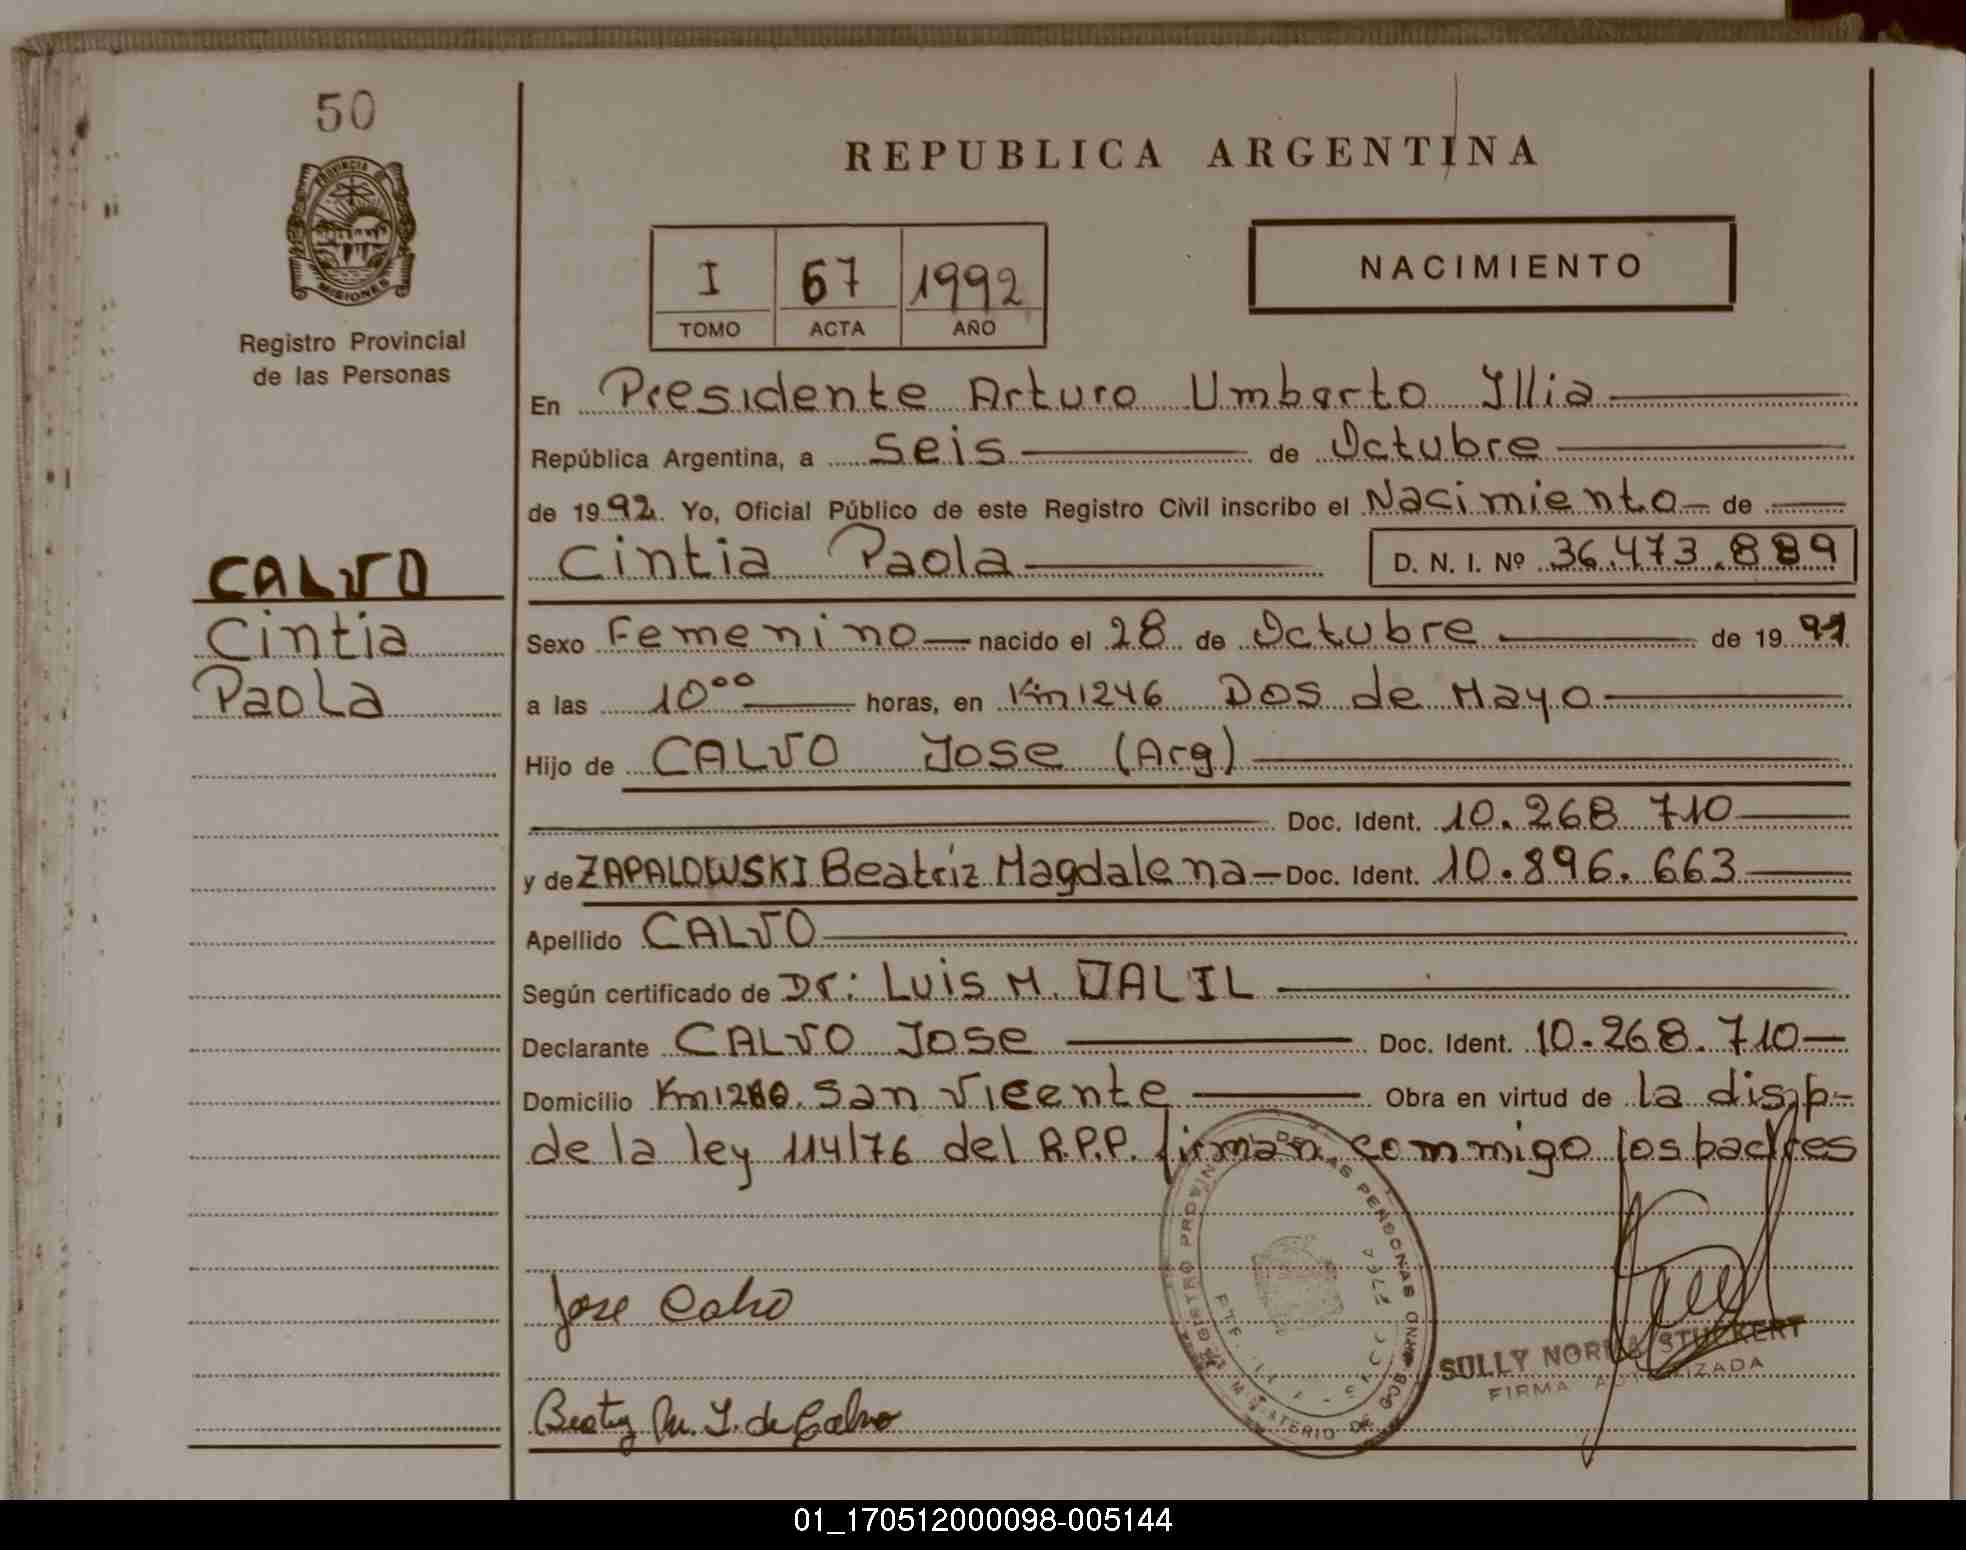 50
PROVINCIA DE
MISIONES
Registro Provincial
de las Personas
CALVO
Cintia
Paola
REPUBLICA ARGENTINA
I 67 1992
TOMO ACTA AÑO
NACIMIENTO
En Presidente Arturo Umberto Illia
República Argentina, a seis de Octubre
de 1992 Yo, Oficial Público de este Registro Civil inscribo el Nacimiento de
Cintia Paola D. N. I. Nº 36.473.889
Sexo Femenino nacido el 28 de Octubre de 1991
a las 10⁰⁰ horas, en Km 1246 Dos de Mayo
Hijo de CALVO Jose (Arg)
Doc. Ident. 10.268 710
y de ZAPALOWSKI Beatriz Magdalena Doc. Ident. 10.896.663
Apellido CALVO
Según certificado de Dr: Luis M. JALIL
Declarante CALVO Jose Doc. Ident. 10.268.710
Domicilio San Vicente Obra en virtud de la disp-
de la ley 114/76 del R.P.P. firman commigo los padres
Jose Calvo
REGISTRO PROVIN DE LAS PERSONAS
MINISTERIO DE GOB
SULLY NORMA STUCKERT
FIRMA AUTORIZADA
Beatriz M. de Calvo
01_170512000098-005144